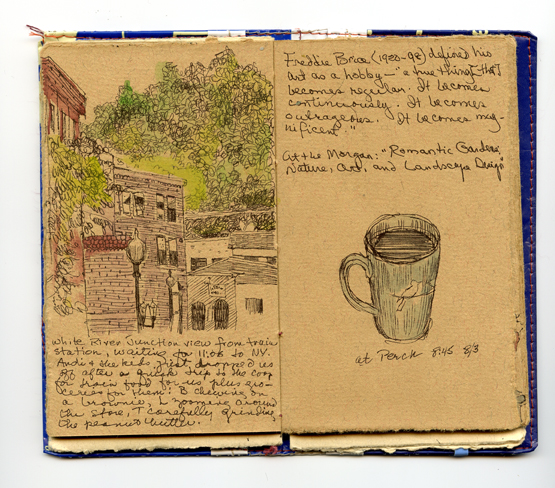 White River Junction view from train
station, waiting for 11:08 to NY.
Andi & the kids just dropped us
off after a quick trip to the coop
for train food for us plus gro-
ceries for them: B chewing on
a brownie, L zooming around
the store, T carefully grinding
the peanut butter.
Freddie Brice (1920-98) defined his
art as a hobby — "a true thing that
becomes regular. It becomes
continuously. It becomes
outrageous. It becomes mag-
nificent."
At the Morgan: "Romantic Gardens,
Nature, Art, and Landscape Design"
at Perch 8:45 8/3